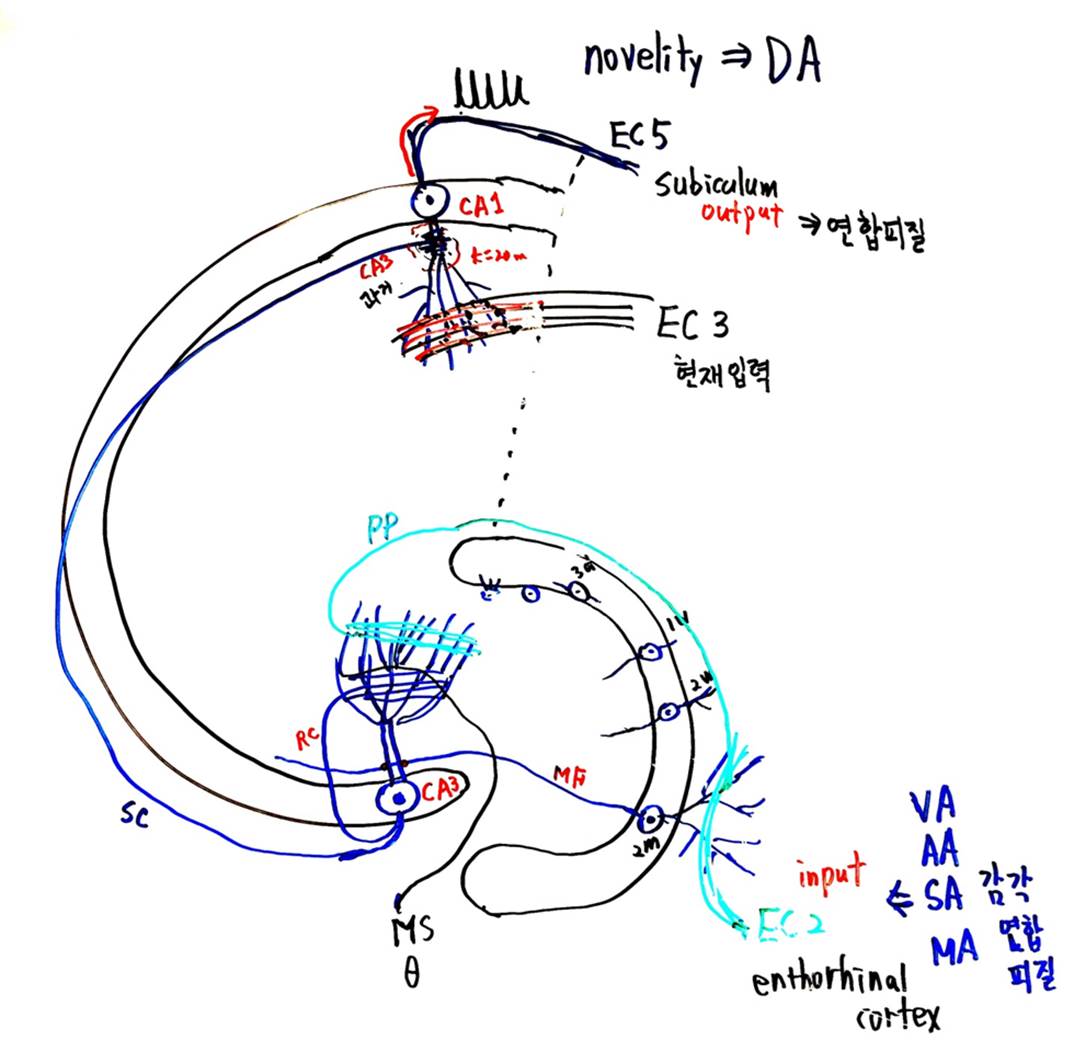 novelity ⇒ DA
EC5
subiculum
output → 연합피질
CA1
CA3
과거
t=20m
EC 3
현재입력
PP
RC
CA3
MF
SC
2M
2M
MS
θ
input
EC2
enthorhinal
cortex
VA
AA
⇐ SA 감각
MA 연합
피질